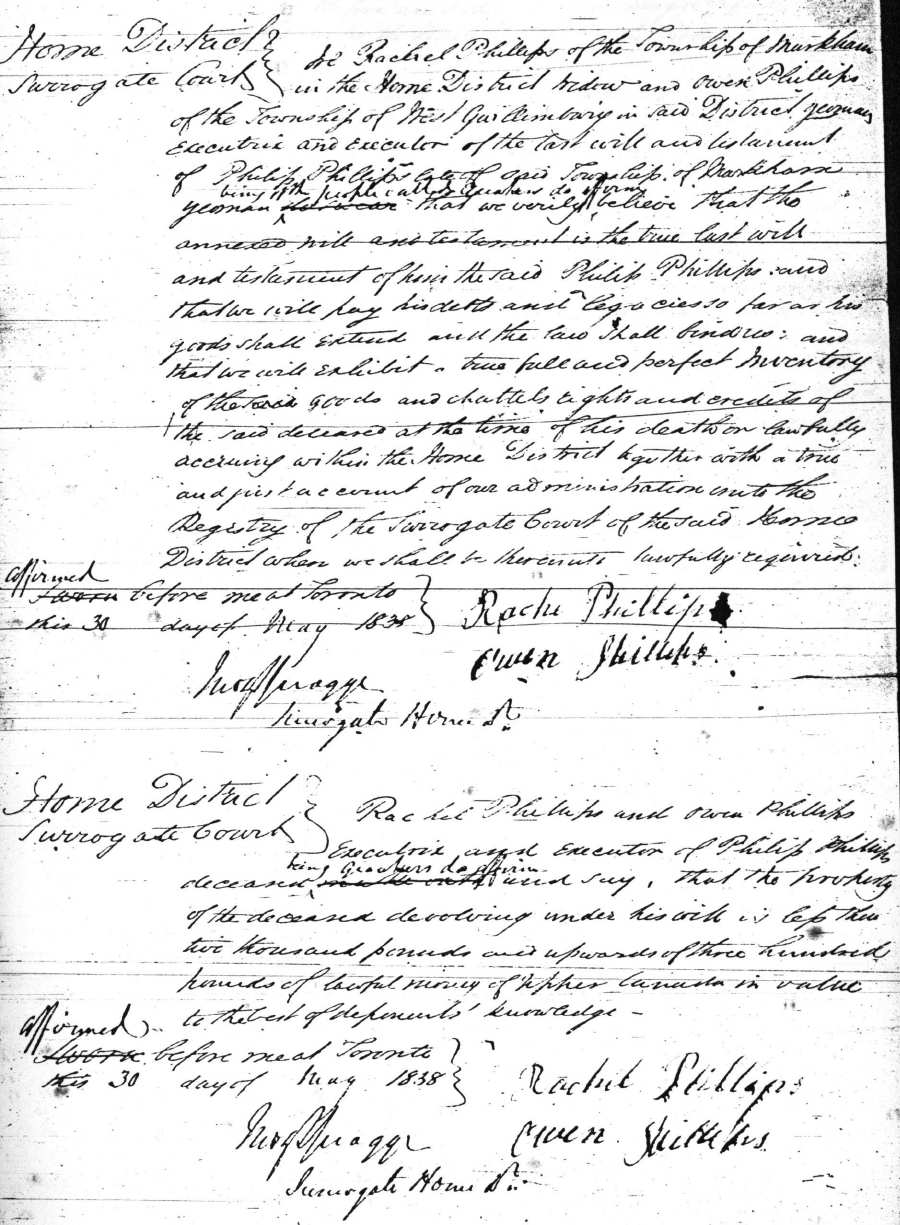 Home District
Surrogate Court
We Rachel Phillips of the Township of Markham
in the Home District widow and Owen Phillips
of the Township of West Guillimbury in said District yeoman
Executrix and executor of the last will and testament
of Philip Phillips late of said Township of Markham
being of the people called Quakers do affirm
yeoman that we verily believe that the
annexed will and testament is the true last will
and testament of him the said Philip Phillips and
that we will pay his debts and legacies so far as his
goods shall extend and the law shall bind us: and
that we will exhibit a true full and perfect Inventory
of the goods and chattels rights and credits of
the said deceased at the time of his death or lawfully
accruing within the Home District together with a true
and just account of our administration unto the
Registry of the Surrogate Court of the said Home
District when we shall be thereunto lawfully required.
affirmed
sworn before me at Toronto
this 30 day of May 1838
Rachel Phillips
Owen Phillips
Surrogate Home Dt.
Home District
Surrogate Court
Rachel Phillips and Owen Phillips
Executrix and Executor of Philip Phillips
being Quakers do affirm
deceased make oath and say, that the property
of the deceased devolving under his will is less than
two thousand pounds and upwards of three hundred
pounds of lawful money of Upper Canada in value
to the best of deponents' knowledge -
affirmed
sworn before me at Toronto
this 30 day of May 1838
Rachel Phillips
Owen Phillips
Surrogate Home Dt.